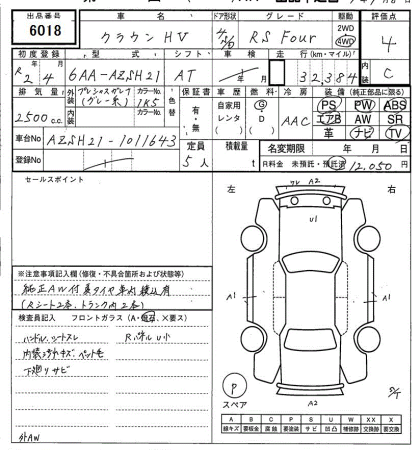 出品番号 車名 ドア形状 グレード 駆動 評価点
6018 クラウン HV 4/ RS Four 2WD 4WD 4
初度登録 型式 シフト 車検 走行(km・マイル) 内装
R2 4 6AA-AZSH21 AT 年 月 32384 C
排気量 外装 プレシャスガレナ カラーNo. 色替 保証書 車歴 燃料 冷房 装備(純正部品に限る)
2500 c.c. 1K5 有・無 自家用 G AAC PS PW ABS
内装 カラーNo. レンタ D エアB AW SR
( ) ( ) 革 ナビ TV
車台No AZSH21-1011643 定員 積載量 名変期限 年 月 日
登録No 5人 t R料金 未預託・預託済 12,050 円
セールスポイント
左 右
A2
U1
A1 A1
※注意事項記入欄(修復・不具合箇所および状態等)
純正AW付夏タイヤ車内積込有
(Rシート2本、トランク内2本)
検査員記入 フロントガラス(A・飛石、×要ス)
ハンドル、シートスレ Rパネル U小
内装 キズ、ペット毛
下廻りサビ
外AW
P
スペア
A2
A B C P S U W XX X
線キズ 要板金 腐蝕 要塗装 サビ 凹凸 補修跡 交換跡 要交換